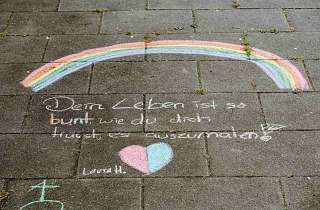 Dein Leben ist so
bunt wie du dich
traust, es auszumalen!
Laura H.